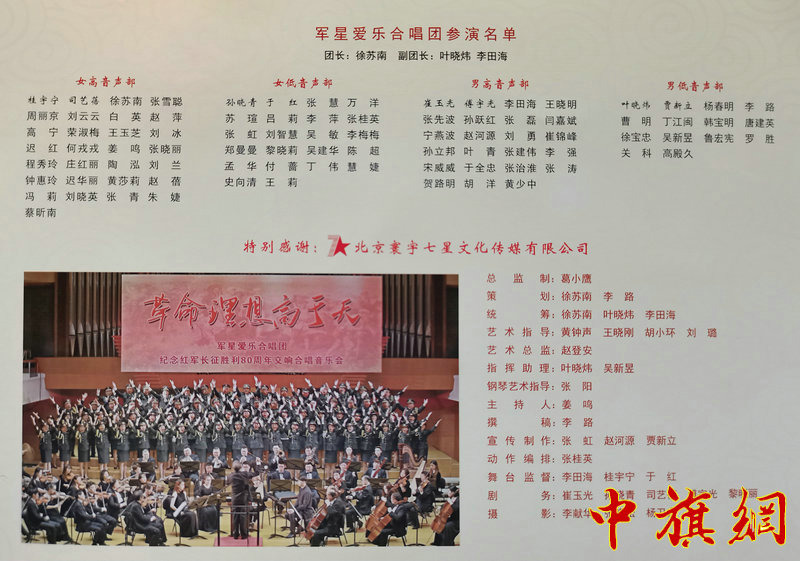 军星爱乐合唱团参演名单
团长：徐苏南 副团长：叶晓炜 李田海
女高音声部
桂宇宁 司艺蓓 徐苏南 张雪聪
周丽京 刘云云 白英 赵萍
高宁 荣淑梅 王玉芝 刘冰
迟红 何戎戎 姜鸣 张晓丽
程秀玲 庄红丽 陶泓 刘兰
钟惠玲 迟华丽 黄莎莉 赵蓓
冯莉 刘晓英 张青 朱婕
蔡昕南
女低音声部
孙晓青 于红 张慧 万洋
苏瑄 吕莉 李萍 张桂英
张虹 刘智慧 吴敏 李梅梅
郑曼曼 黎晓莉 吴建华 陈超
孟华 付蔷 丁伟 慧婕
史向清 王莉
男高音声部
崔玉光 傅宇光 李田海 王晓明
张先波 孙跃红 张磊 闫嘉斌
宁燕波 赵河源 刘勇 崔锦峰
孙立邦 叶青 张建伟 李强
宋威威 于全忠 张治淮 张涛
贺路明 胡洋 黄少中
男低音声部
叶晓炜 贾新立 杨春明 李路
曹明 丁江闽 韩宝明 唐建英
徐宝忠 吴新昱 鲁宏宪 罗胜
关科 高殿久
特别感谢：7★北京寰宇七星文化传媒有限公司
革命理想高于天
军星爱乐合唱团
纪念红军长征胜利80周年交响合唱音乐会
总监制：葛小鹰
策划：徐苏南 李路
统筹：徐苏南 叶晓炜 李田海
艺术指导：黄钟声 王晓刚 胡小环 刘璐
艺术总监：赵登安
指挥助理：叶晓炜 吴新昱
钢琴艺术指导：张阳
主持人：姜鸣
撰稿：李路
宣传制作：张虹 赵河源 贾新立
动作编排：张桂英
舞台监督：李田海 桂宇宁 于红
剧务：崔玉光 孙晓青 司艺 光 黎晓丽
摄影：李献华 杨
中旗網